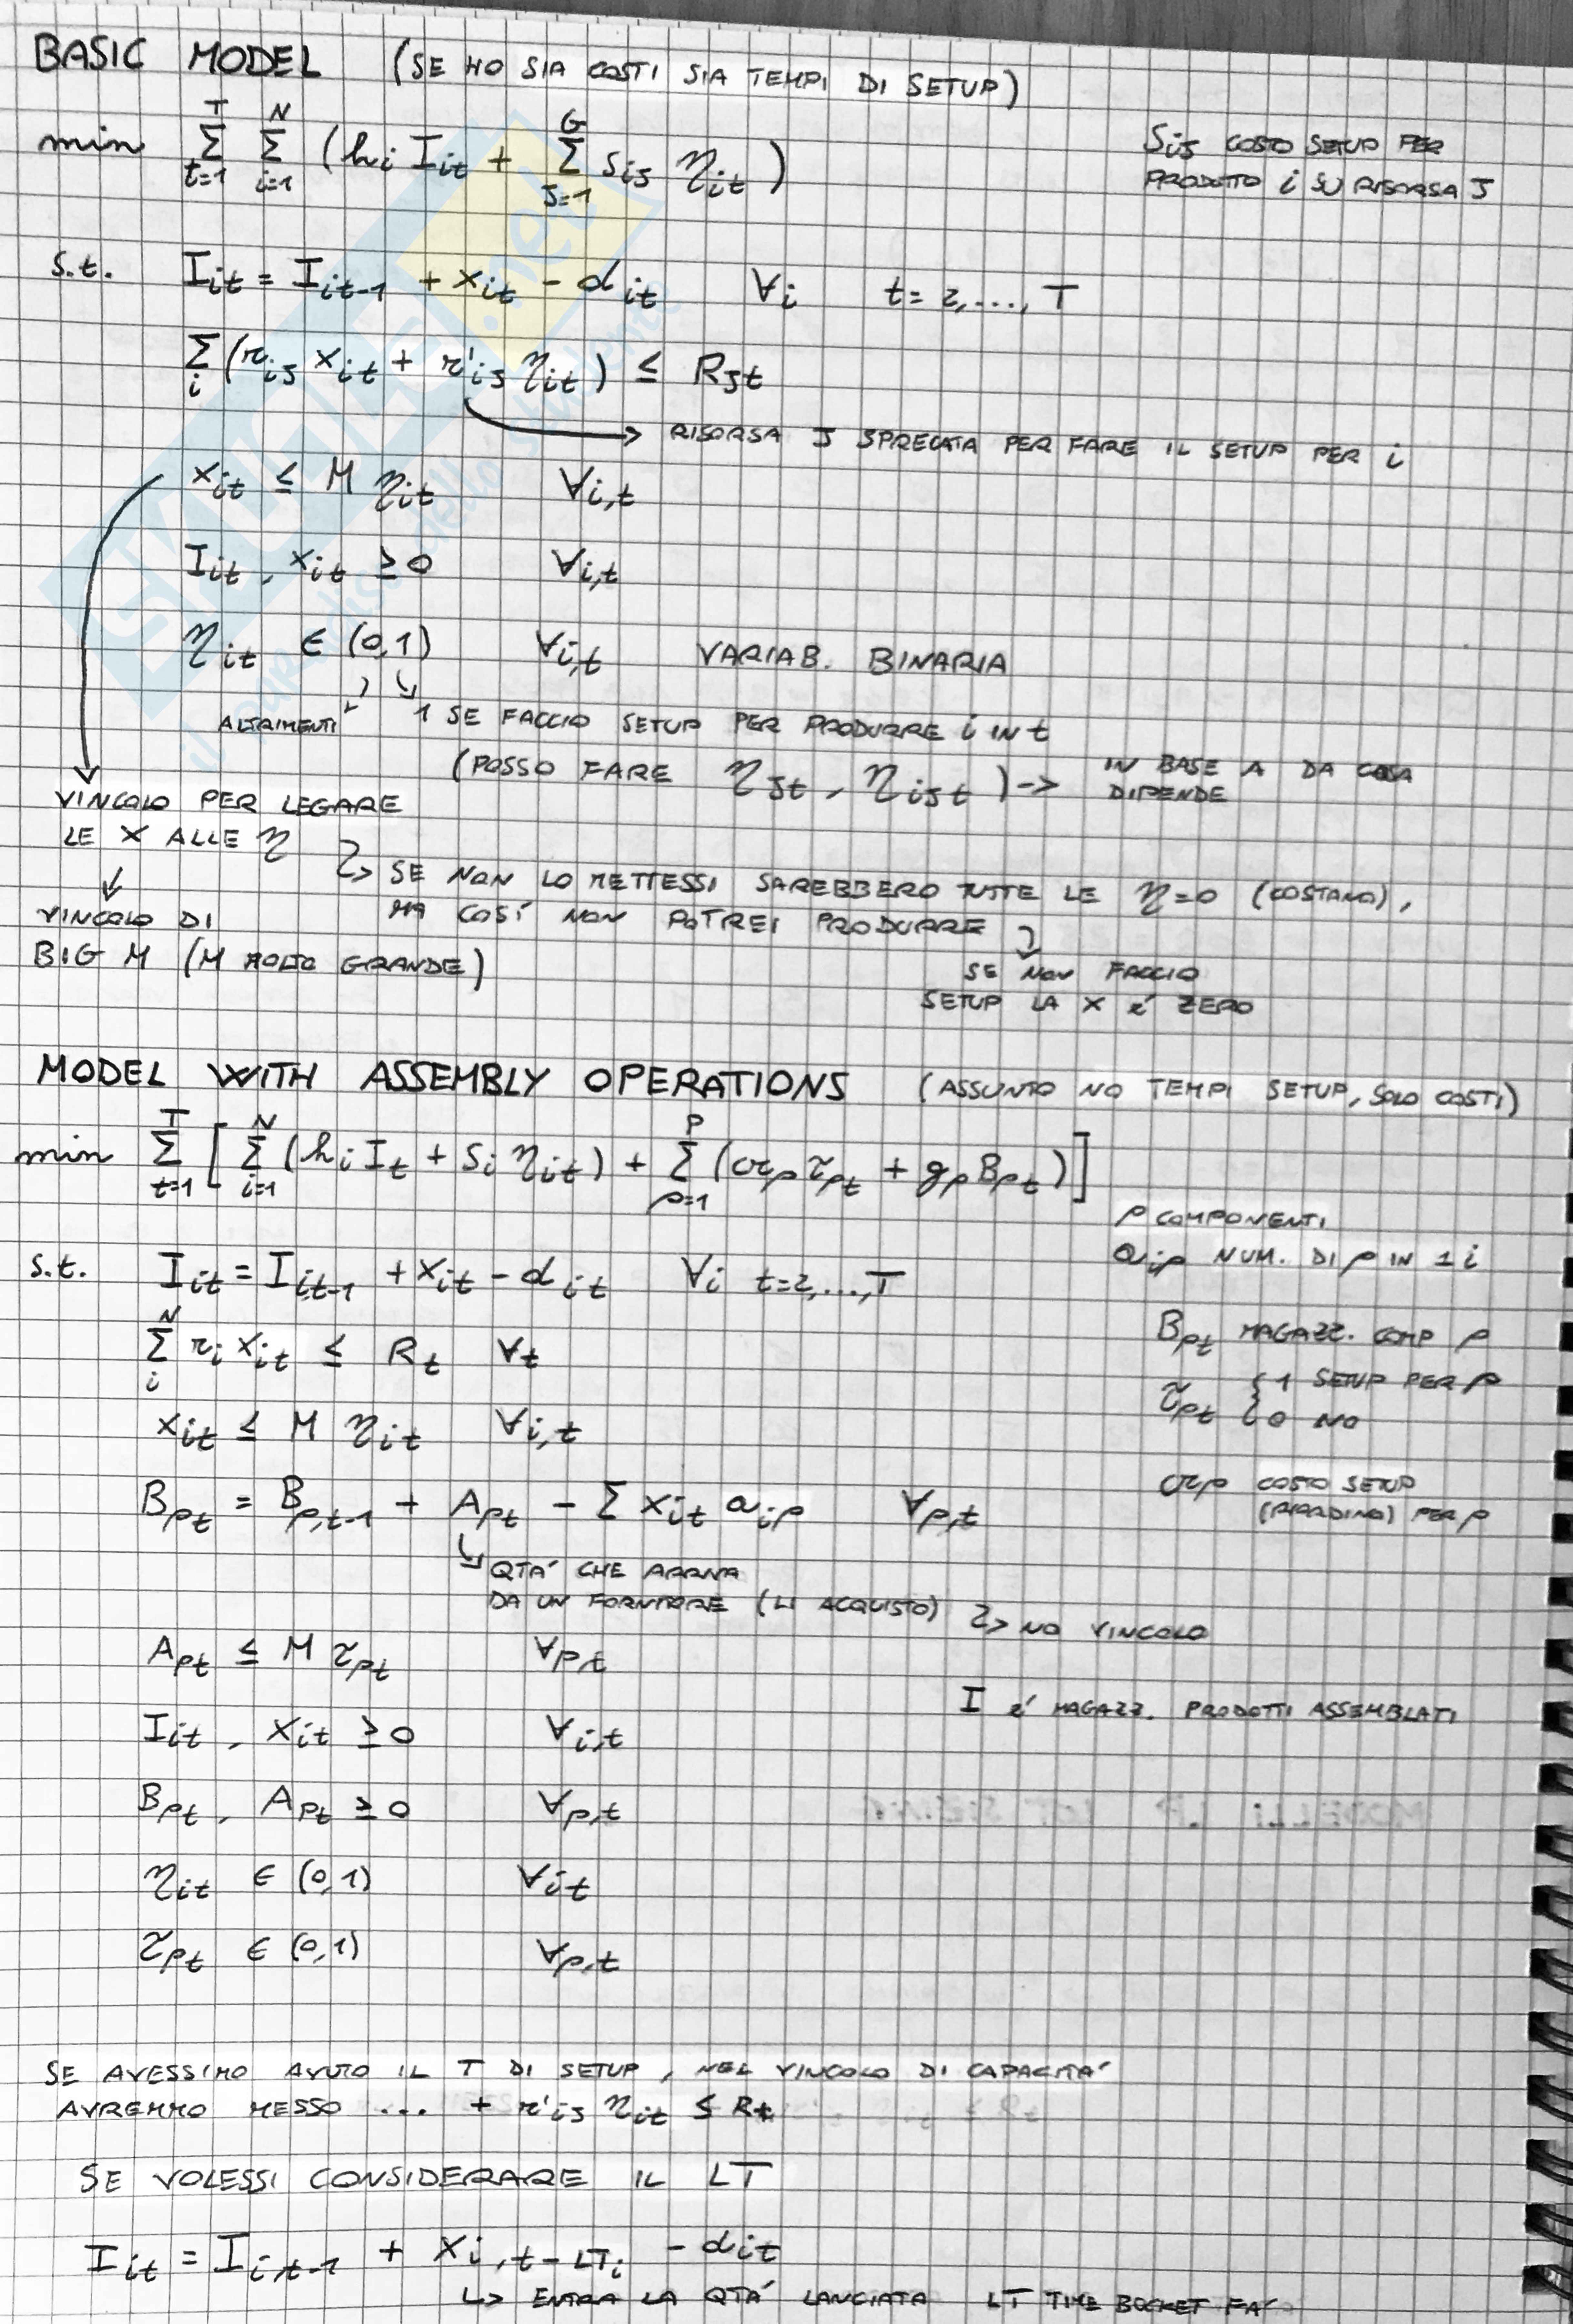 BASIC MODEL (SE HO SIA COSTI SIA TEMPI DI SETUP)
min Σ_{t=1}^{T} Σ_{i=1}^{N} (h_i I_it + Σ_{J=1}^{G} s_iJ η_it)
S_iJ COSTO SETUP PER
PRODOTTO i SU RISORSA J
s.t. I_it = I_it-1 + x_it - d_it ∀i t = 2,...,T
Σ_i (r_iJ x_it + r'_iJ η_it) ≤ R_Jt
→ RISORSA J SPRECATA PER FARE IL SETUP PER i
x_it ≤ M η_it ∀i,t
I_it, x_it ≥ 0 ∀i,t
η_it ∈ (0,1) ∀i,t VARIAB. BINARIA
ALTRIMENTI 1 SE FACCIO SETUP PER PRODURRE i IN t
(POSSO FARE η_Jt, η_iJt) -> IN BASE A DA COSA
DIPENDE
VINCOLO PER LEGARE
LE X ALLE η
↳ SE NON LO METTESSI SAREBBERO TUTTE LE η=0 (COSTANO),
MA COSÍ NON POTREI PRODURRE
↓
VINCOLO DI
BIG M (M MOLTO GRANDE)
SE NON FACCIO
SETUP LA X E' ZERO
MODEL WITH ASSEMBLY OPERATIONS (ASSUNTO NO TEMPI SETUP, SOLO COSTI)
min Σ_{t=1}^{T} [Σ_{i=1}^{N} (h_i I_t + S_i η_it) + Σ_{p=1}^{P} (σ_p τ_pt + g_p B_pt)]
p COMPONENTI
a_ip NUM. DI p IN 1 i
s.t. I_it = I_it-1 + x_it - d_it ∀i t=2,...,T
B_pt MAGAZZ. COMP p
Σ_i^N r_i x_it ≤ R_t ∀t
τ_pt { 1 SETUP PER p
0 NO
x_it ≤ M η_it ∀i,t
σ_p COSTO SETUP
(RIORDINO) PER p
B_pt = B_p,t-1 + A_pt - Σ x_it a_ip ∀p,t
↳ QTA' CHE ARRIVA
DA UN FORNITORE (LI ACQUISTO) ↳ NO VINCOLO
A_pt ≤ M τ_pt ∀p,t
I E' MAGAZZ. PRODOTTI ASSEMBLATI
I_it, x_it ≥ 0 ∀i,t
B_pt, A_pt ≥ 0 ∀p,t
η_it ∈ (0,1) ∀it
τ_pt ∈ (0,1) ∀p,t
SE AVESSIMO AVUTO IL T DI SETUP, NEL VINCOLO DI CAPACITA'
AVREMMO MESSO ... + r'_iJ η_it ≤ R_t
SE VOLESSI CONSIDERARE IL LT
I_it = I_i,t-1 + x_i,t-LT_i - d_it
↳ ENTRA LA QTA' LANCIATA LT TIME BOCKET FA'